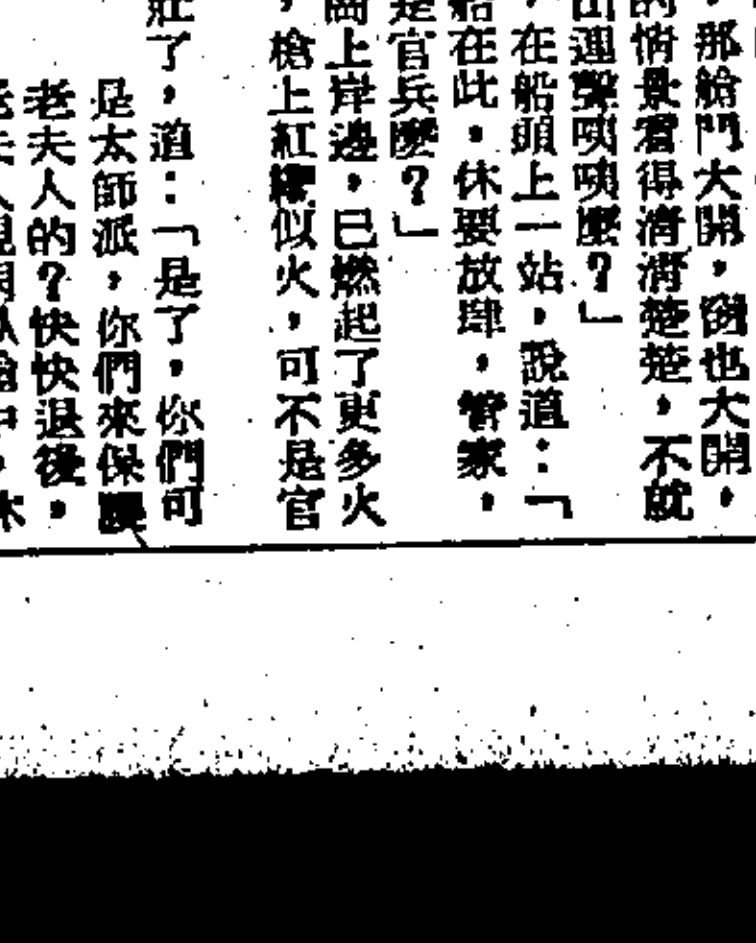 ，那艙門大開，窗也大開，
的情景看得清清楚楚，不就
出連聲咦咦麼？」
，在船頭上一站，說道：「
船在此，休要放肆，管家，
是官兵麼？」
崗上岸邊，已燃起了更多火
，槍上紅纓似火，可不是官
壯了，道：「是了，你們可
是太師派，你們來保護
老夫人的？快快退後，